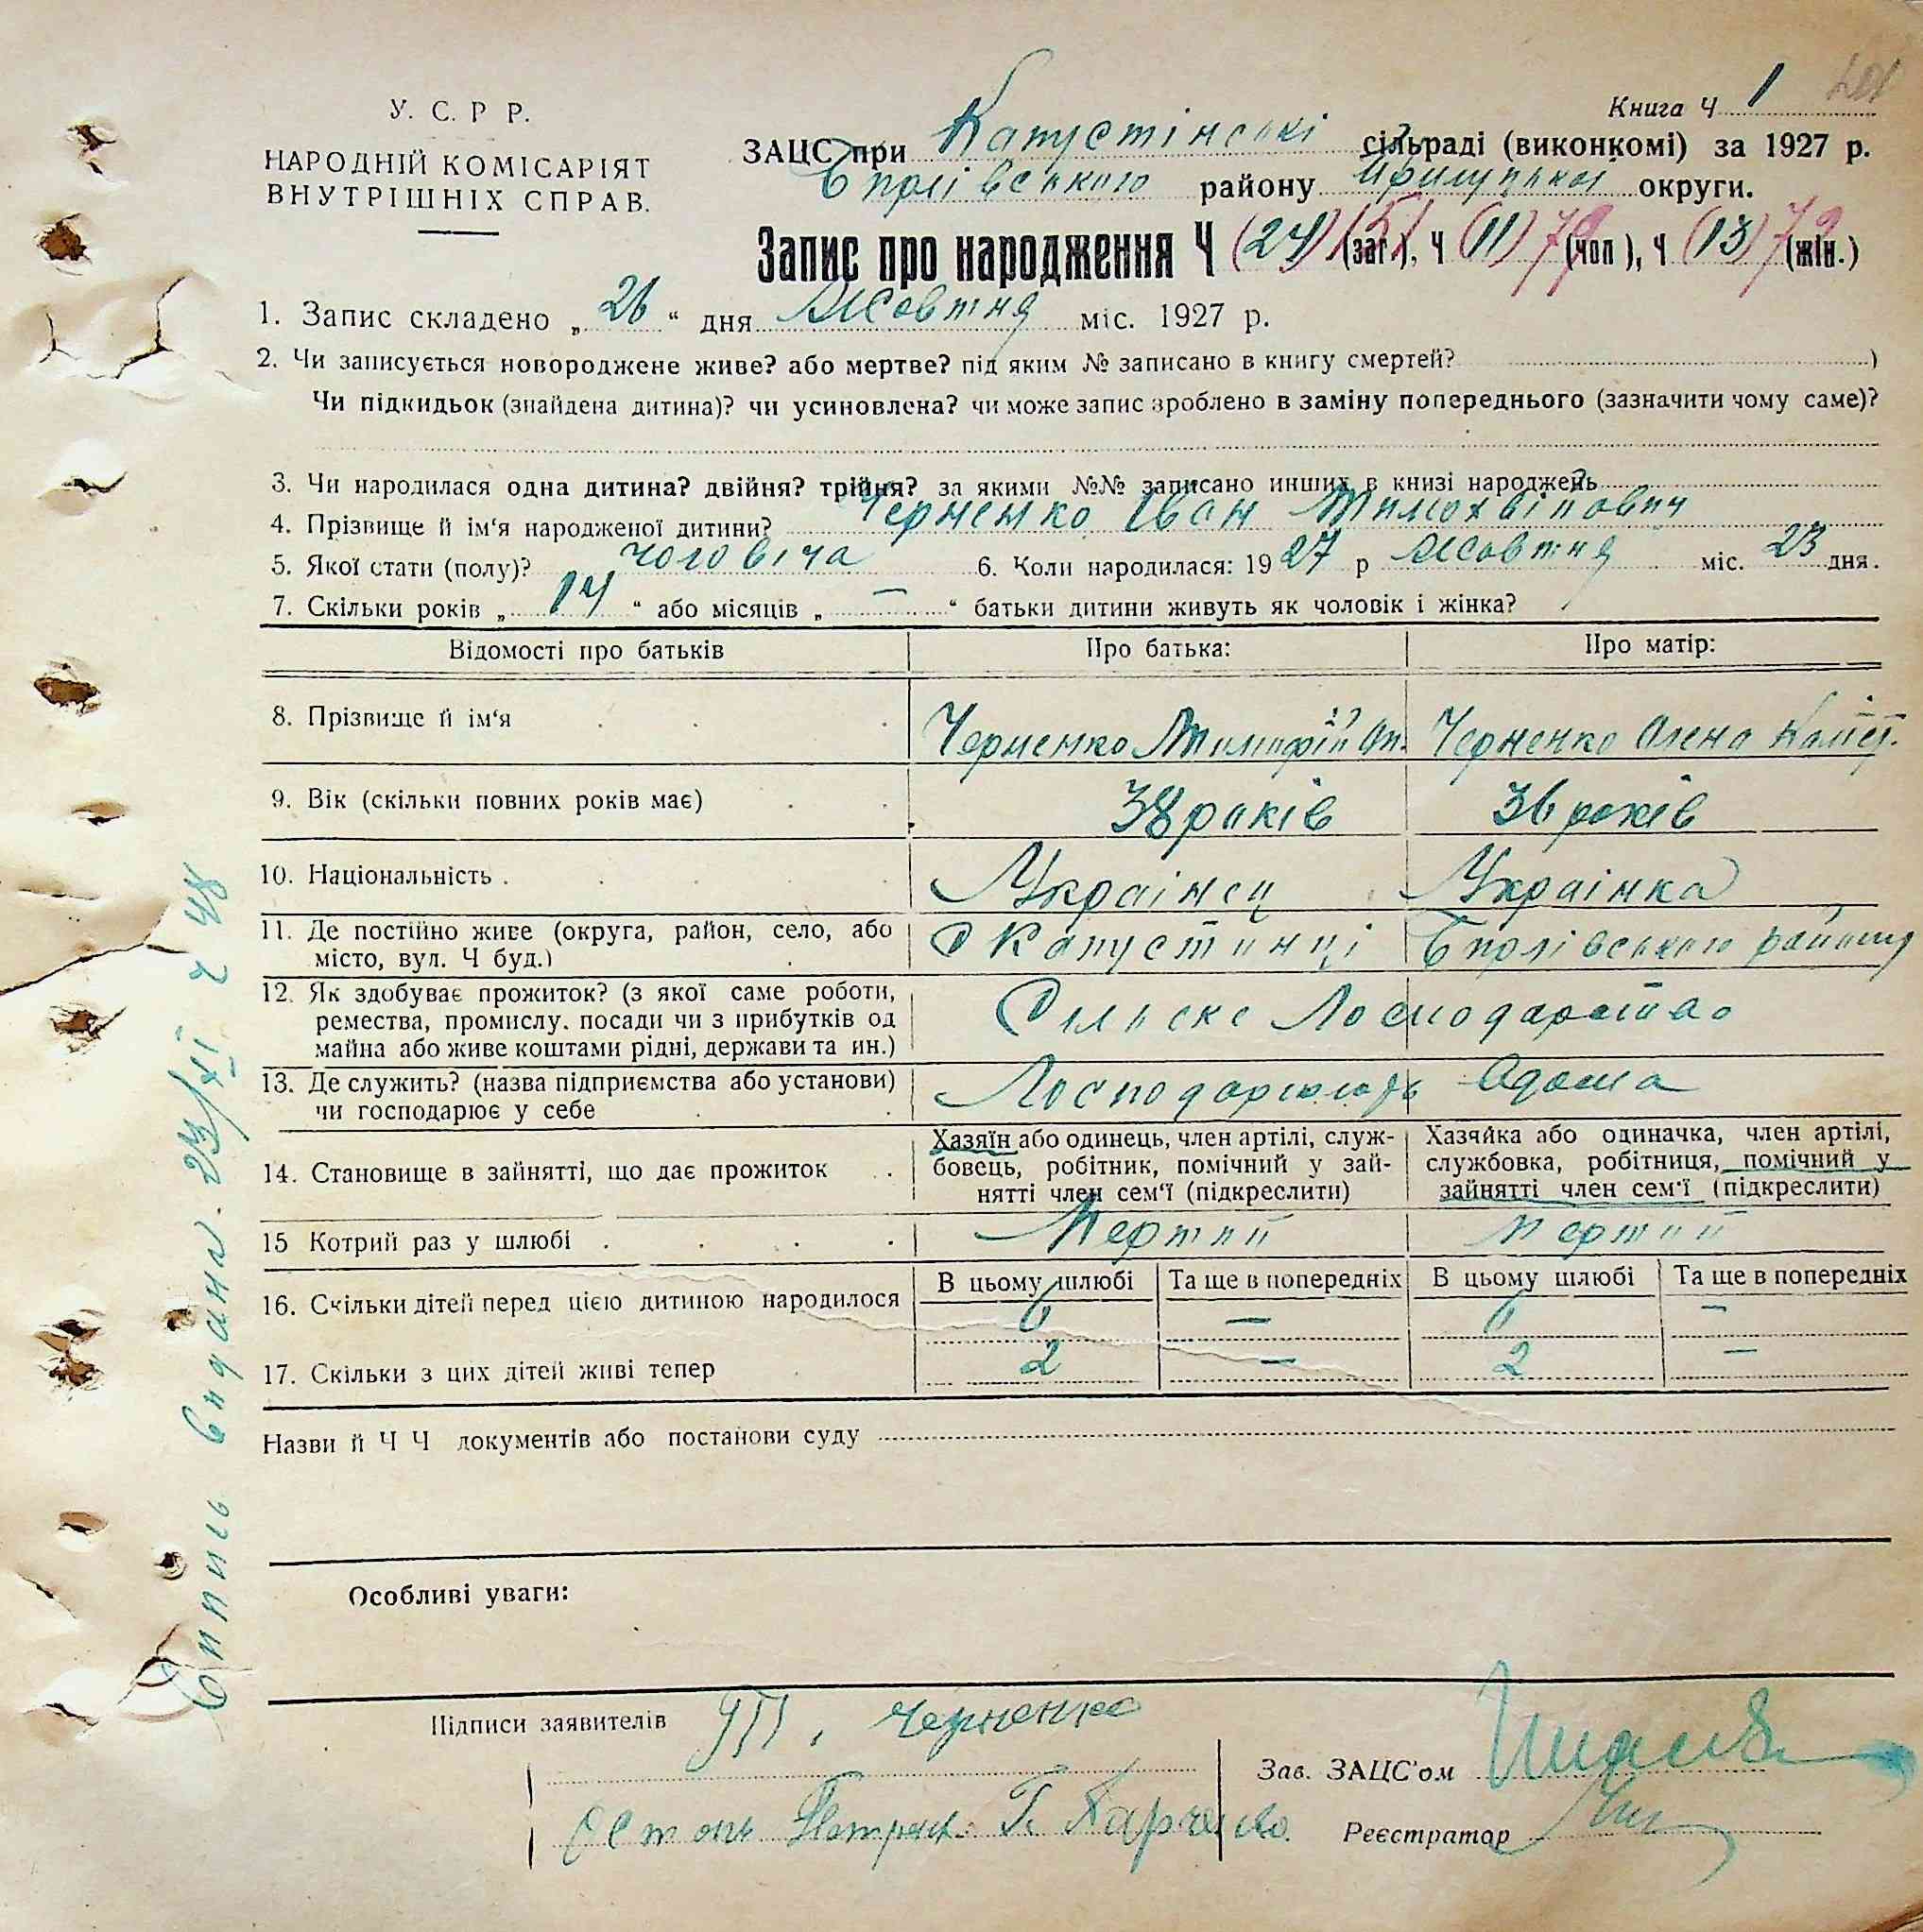 Книга Ч 1
У. С. Р Р.
НАРОДНІЙ КОМІСАРІЯТ
ВНУТРІШНІХ СПРАВ.
ЗАЦС при Капустінські сільраді (виконкомі) за 1927 р.
району Прилуцької округи.
Запис про народження Ч (24) (заг.), Ч (11) 79 (чол.), Ч (13) 72 (жін.)
1. Запис складено „ 26 “ дня Жовтня міс. 1927 р.
2. Чи записується новороджене живе? або мертве? під яким № записано в книгу смертей? )
Чи підкидьок (знайдена дитина)? чи усиновлена? чи може запис зроблено в заміну попереднього (зазначити чому саме)?
3. Чи народилася одна дитина? двійня? трійня? за якими №№ записано инших в книзі народжень
4. Прізвище й ім‘я народженої дитини? Черненко Іван Тимохвійович
5. Якої стати (полу)? чоловіча 6. Коли народилася: 19 27 р Жовтня міс. 23 дня.
7. Скільки років „ 14 “ або місяців „ — “ батьки дитини живуть як чоловік і жінка?
Відомості про батьків Про батька: Про матір:
8. Прізвище й ім‘я Черненко Тимофій Черненко Олена
9. Вік (скільки повних років має) 38 років 36 років
10. Національність Українец Українка
11. Де постійно живе (округа, район, село, або місто, вул. Ч буд.) С Капустинці району
12. Як здобуває прожиток? (з якої саме роботи,
ремества, промислу. посади чи з прибутків од
майна або живе коштами рідні, держави та ин.) Сільске Господарство
13. Де служить? (назва підприємства або установи)
чи господарює у себе Господарюють Вдома
14. Становище в зайнятті, що дає прожиток
Хазяїн або одинець, член артілі, служ-
бовець, робітник, помічний у зай-
нятті член сем‘ї (підкреслити)
Хазяйка або одиначка, член артілі,
службовка, робітниця, помічний у
зайнятті член сем‘ї (підкреслити)
15 Котрий раз у шлюбі Пертий Пертий
В цьому шлюбі Та ще в попередніх В цьому шлюбі Та ще в попередніх
16. Скільки дітей перед цією дитиною народилося 6 — 6 —
17. Скільки з цих дітей живі тепер 2 — 2 —
Назви й Ч Ч документів або постанови суду
Особливі уваги:
Підписи заявителів Черненко
Зав. ЗАЦС‘ом
Реєстратор
видана 23/XI Ч 48